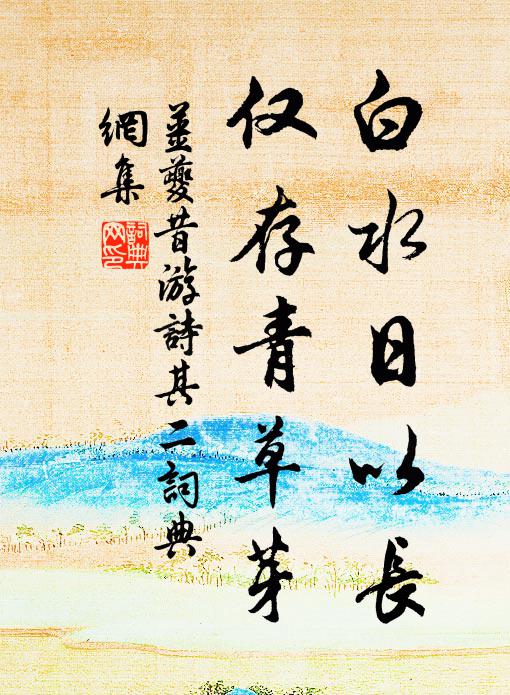 白水日以長
仅存青草芽
姜夔昔游詩其二詞典
網集
詞典
网印